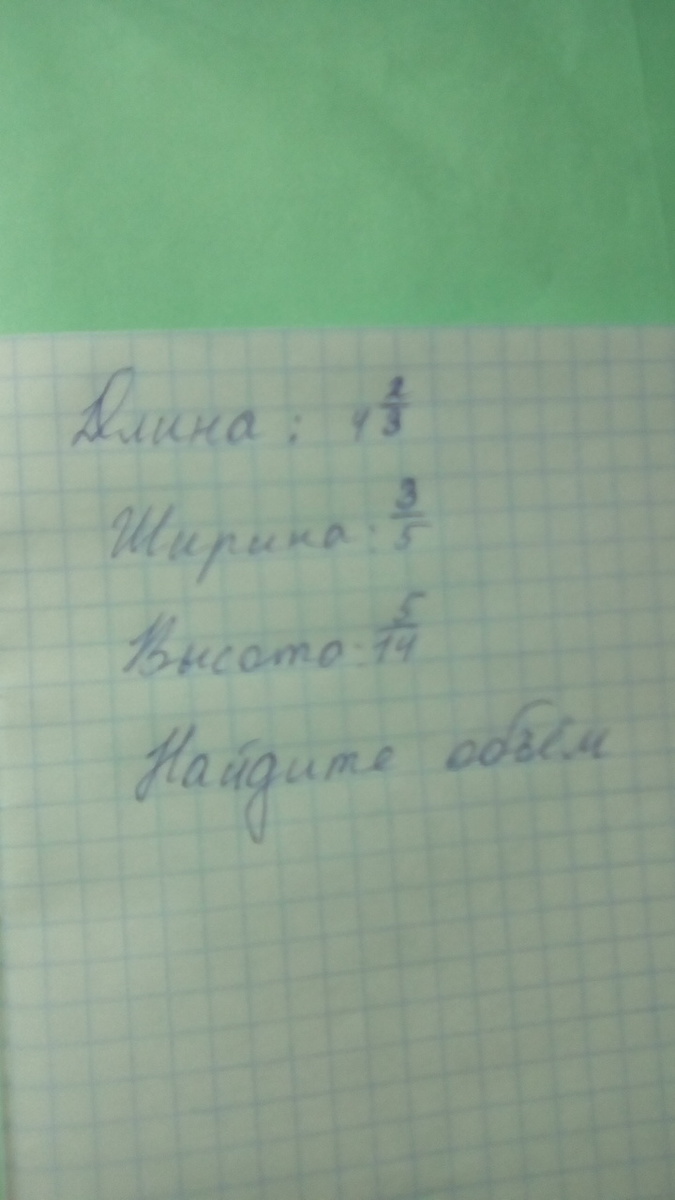 Длина: 4 2/3
Ширина: 3/5
Высота: 5/14
Найдите объём